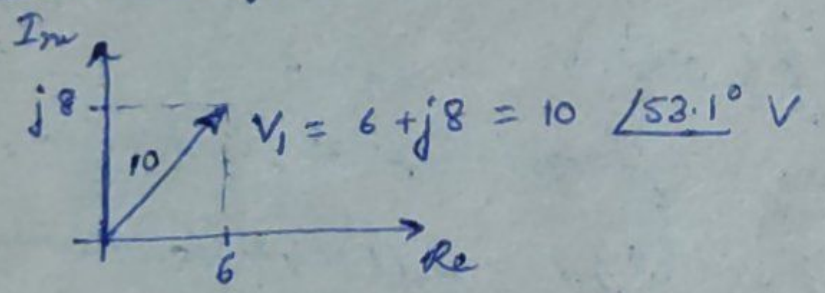 Im
j8
V₁ = 6 + j8 = 10 ∠53.1° V
10
6
Re